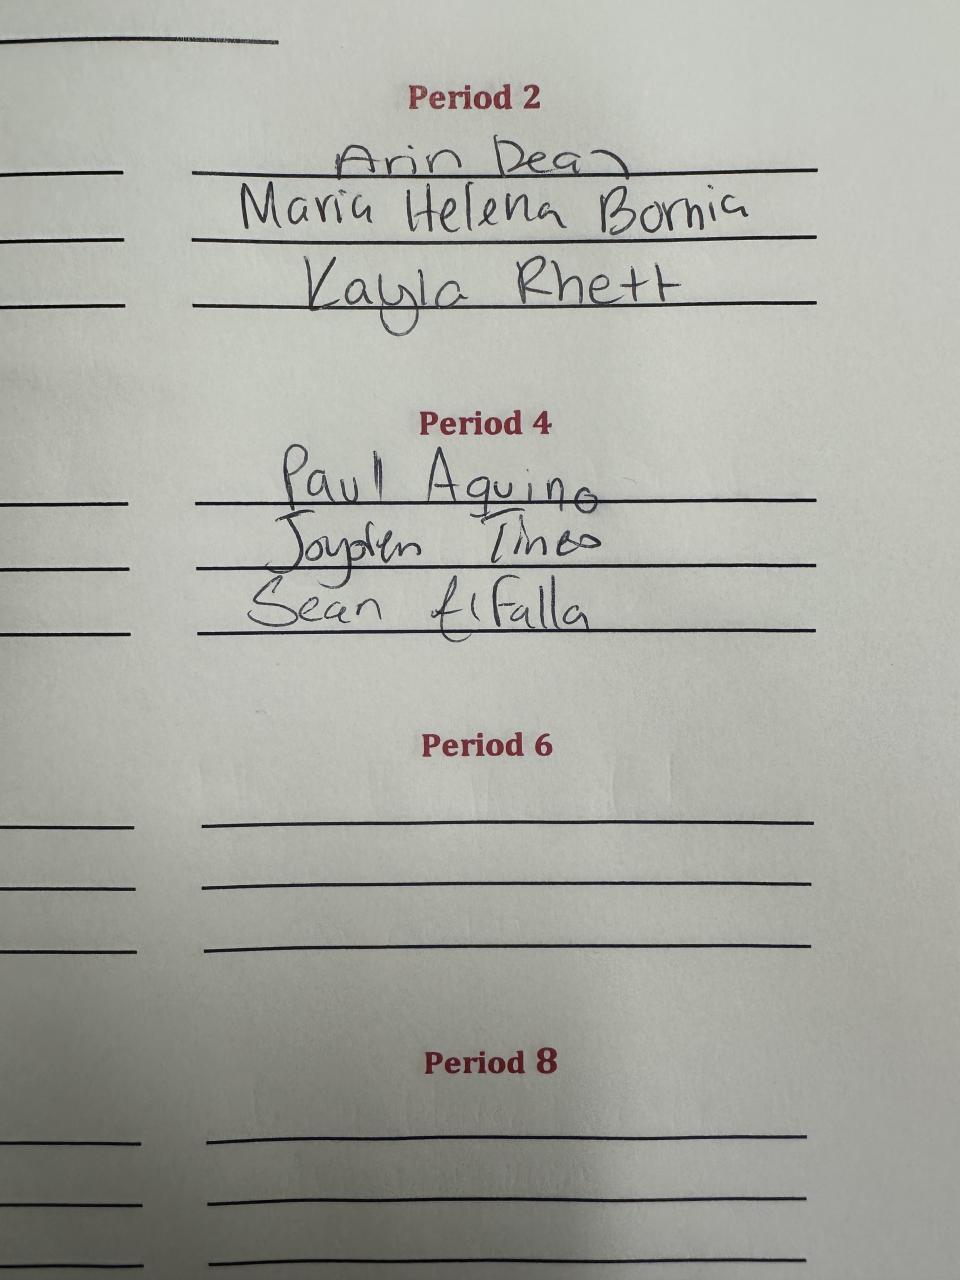 Period 2
Arin Dean
Maria Helena Bornia
Kayla Rhett
Period 4
Paul Aquino
Jayden Tineo
Sean Elfalla
Period 6
Period 8